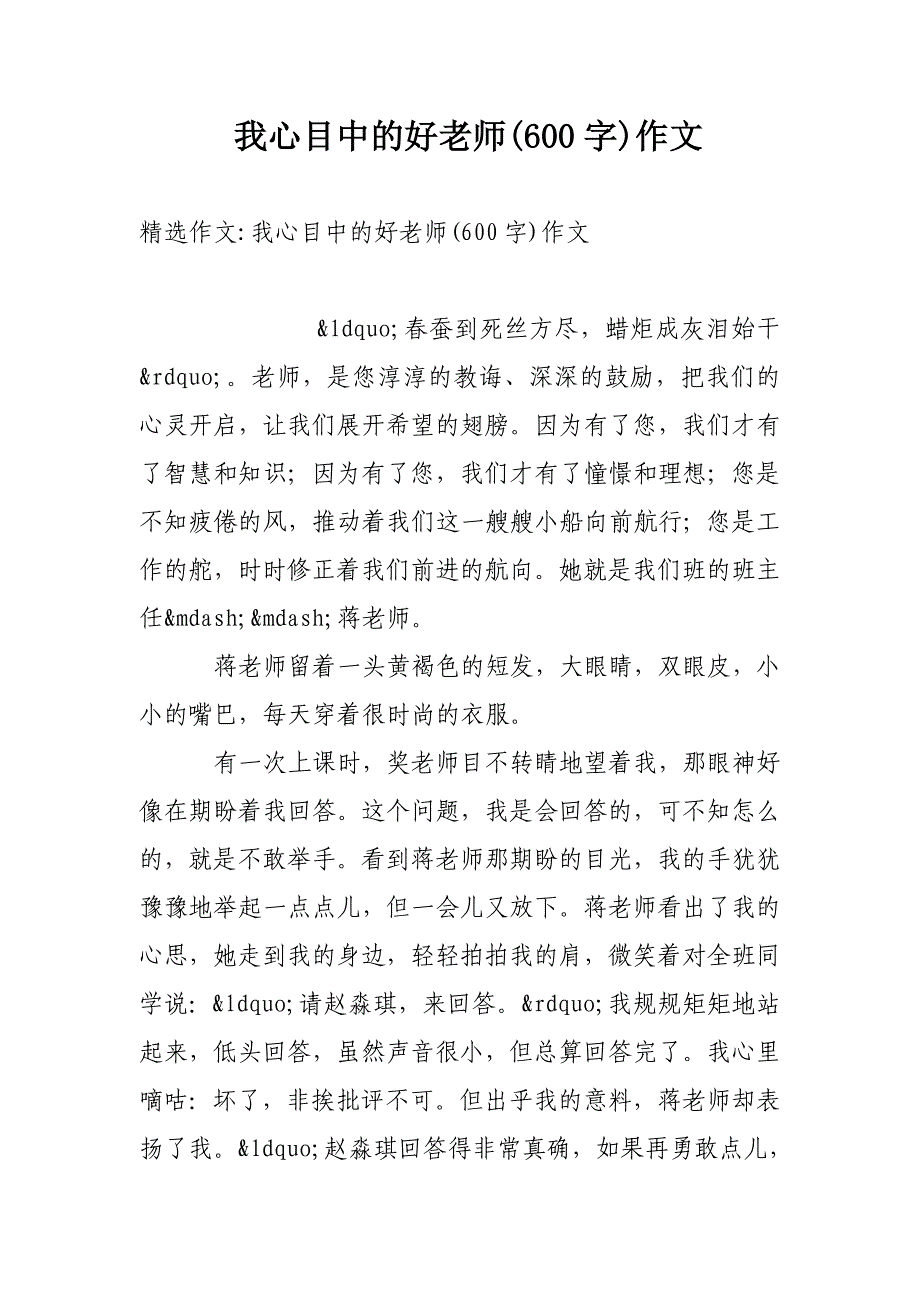 我心目中的好老师(600字)作文
精选作文:我心目中的好老师(600字)作文
&ldquo;春蚕到死丝方尽，蜡炬成灰泪始干
&rdquo;。老师，是您淳淳的教诲、深深的鼓励，把我们的
心灵开启，让我们展开希望的翅膀。因为有了您，我们才有
了智慧和知识；因为有了您，我们才有了憧憬和理想；您是
不知疲倦的风，推动着我们这一艘艘小船向前航行；您是工
作的舵，时时修正着我们前进的航向。她就是我们班的班主
任&mdash;&mdash;蒋老师。
蒋老师留着一头黄褐色的短发，大眼睛，双眼皮，小
小的嘴巴，每天穿着很时尚的衣服。
有一次上课时，奖老师目不转睛地望着我，那眼神好
像在期盼着我回答。这个问题，我是会回答的，可不知怎么
的，就是不敢举手。看到蒋老师那期盼的目光，我的手犹犹
豫豫地举起一点点儿，但一会儿又放下。蒋老师看出了我的
心思，她走到我的身边，轻轻拍拍我的肩，微笑着对全班同
学说：&ldquo;请赵淼琪，来回答。&rdquo;我规规矩矩地站
起来，低头回答，虽然声音很小，但总算回答完了。我心里
嘀咕：坏了，非挨批评不可。但出乎我的意料，蒋老师却表
扬了我。&ldquo;赵淼琪回答得非常真确，如果再勇敢点儿，